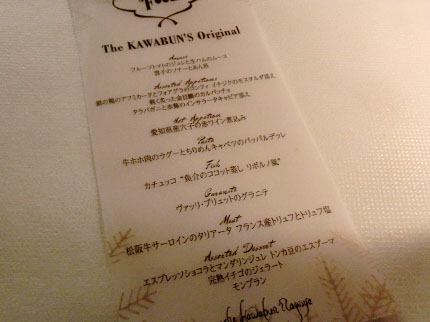 The KAWABUN'S Original
フルーツトマトのジュレと生ハムのムース
Assorted Appetizers
軽く炙った金目鯛のカルパッチョ
タラバガニと赤鶏のインサラータキャビア添え
Hot Appetizer
愛知県産穴子の赤ワイン煮込み
Pasta
牛ホホ肉のラグーとちりめんキャベツのパッパルデッレ
Fish
カチュッコ “魚介のココット蒸し リボルノ風”
Granité
ヴァッリ・ブリュットのグラニテ
Meat
松阪牛サーロインのタリアータ フランス産トリュフとトリュフ塩
Assorted Dessert
エスプレッソショコラとマンダリンジュレ トンカ豆のエスプーマ
完熟イチゴのジェラート
モンブラン
The Kawabun Nagoya